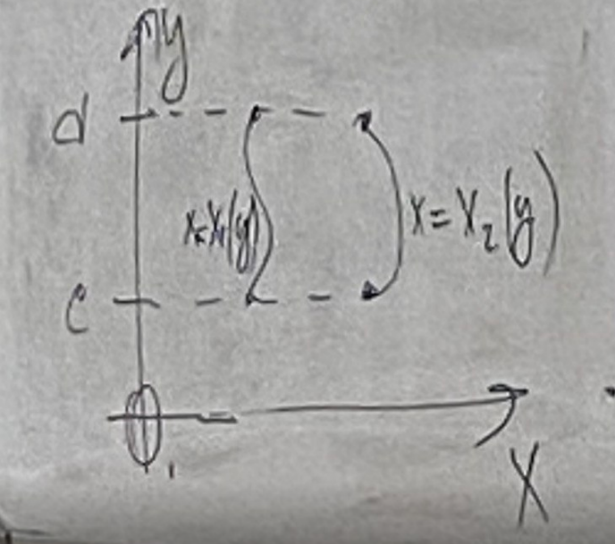 y
d
x=x₁(y)
x=x₂(y)
c
0
X